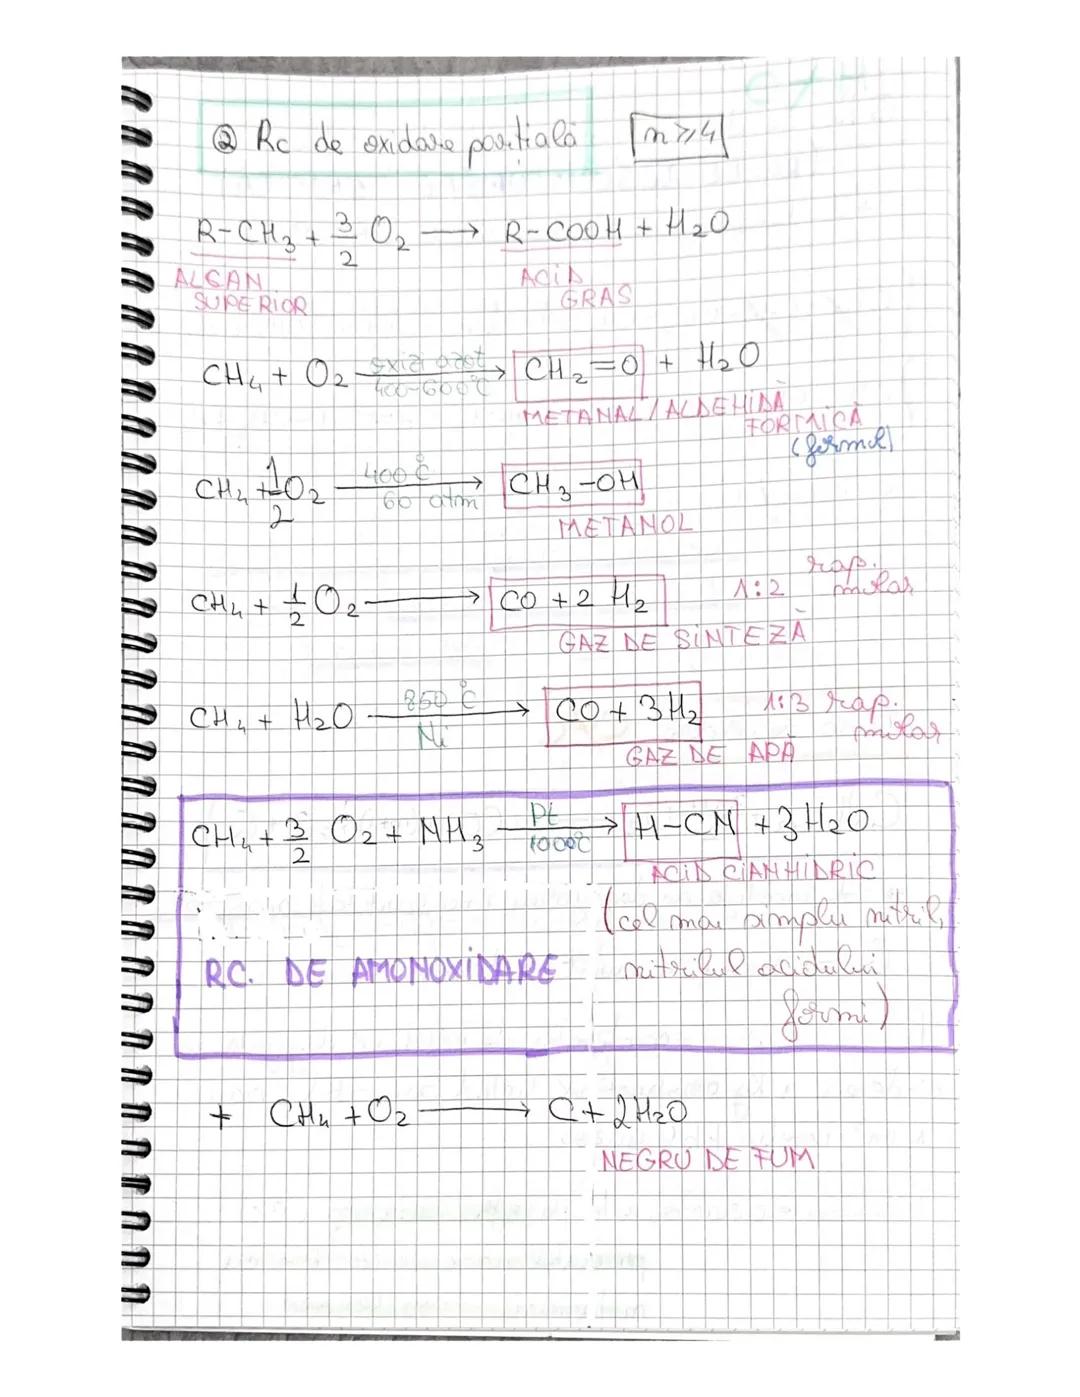 ② Rc de oxidare parțială n≥4
R-CH₃ + 3/2 O₂ → R-COOH + H₂O
ALCAN SUPERIOR ACID GRAS
CH₄ + O₂ oxizi azot 400-600°C → CH₂=O + H₂O
METANAL/ALDEHIDĂ FORMICĂ
(formol)
CH₄ + 1/2 O₂ 400°C 60 atm → CH₃-OH
METANOL
CH₄ + 1/2 O₂ → CO + 2 H₂ 1:2 rap. molar
GAZ DE SINTEZĂ
CH₄ + H₂O 850°C Ni → CO + 3H₂ 1:3 rap. molar
GAZ DE APĂ
CH₄ + 3/2 O₂ + NH₃ Pt 1000°C → H-CN + 3H₂O
ACID CIANHIDRIC
(cel mai simplu nitril,
RC. DE AMONOXIDARE nitrilul acidului
formi)
+ CH₄ + O₂ → C + 2H₂O
NEGRU DE FUM